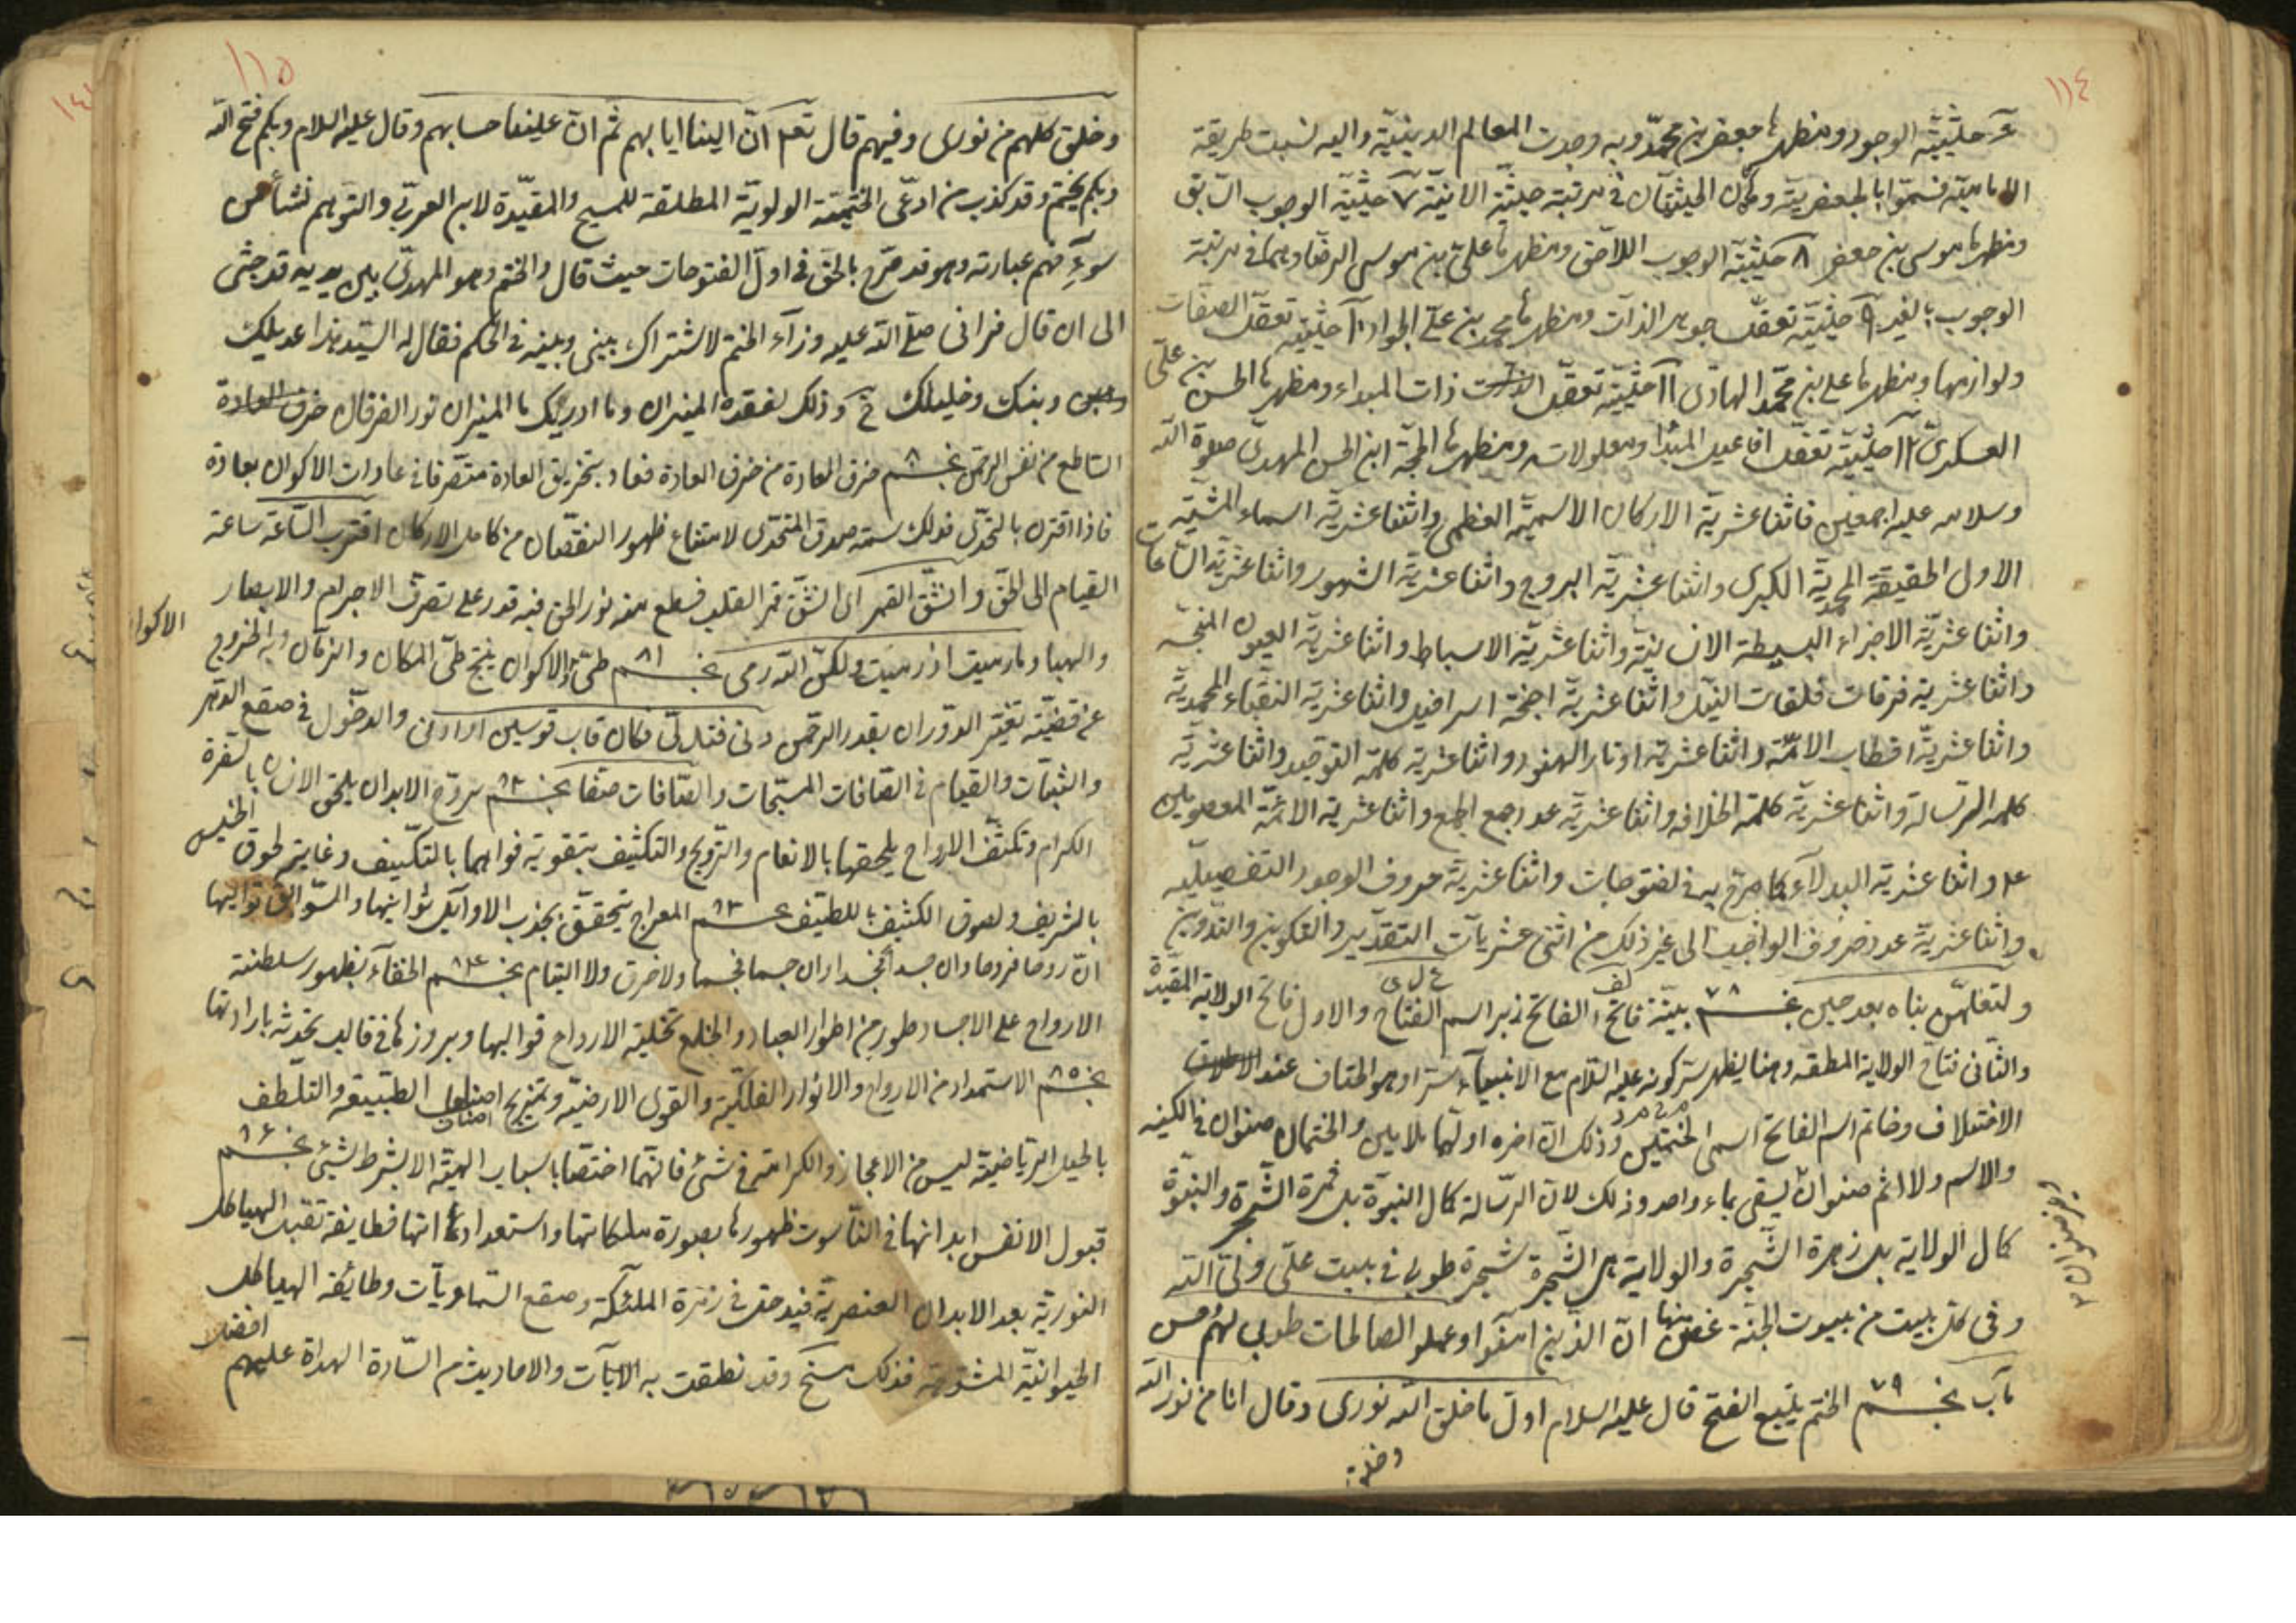 ١١٤
حيثيّة الوجود ومظهرها جعفر بن محمّد وبه وجدت المعالم الدينيّة واليه نسبت طريقة
الاماميّة فسمّوا بالجعفريّة وكان الحيثيّتان في مرتبة حيثيّة الانيّة ٧ حيثيّة الوجوب السّابق
ومظهرها موسى بن جعفر ٨ حيثيّة الوجوب اللاحق ومظهرها علىّ بن موسى الرضا وهما في مرتبة
الوجوب بالغير ٩ حيثيّة تعقّل جوهر الذات ومظهرها محمد بن علىّ الجواد ١٠ حيثيّة تعقّل الصفات
ولوازمها ومظهرها على بن محمّد الهادى ١١ حيثيّة تعقّل ذات المبداء ومظهرها الحسن بن علىّ
العسكرىّ ١٢ حيثيّة تعقّل افاعيل المبدا ومعلولاته ومظهرها الحجّة ابن الحسن المهدىّ صلوة الله
وسلامه عليه اجمعين فاثنا عشريّة الاركان الاسميّة العظمى واثنا عشريّة اسماء المشيّة
الاول الحقيقة المحمديّة الكبرى واثنا عشريّة البروج واثنا عشريّة الشهور واثنا عشريّة السّاعات
واثنا عشريّة الاجزاء البسيطة الانسانيّة واثنا عشريّة الاسباط واثنا عشريّة العيون المنفجرة
واثنا عشرية فرقات فلقات النيل واثنا عشريّة اجنحة اسرافيل واثنا عشرية النقباء المحمدية
واثنا عشريّة اقطاب الامّة واثنا عشرية اوتار الهنود واثنا عشرية كلمة التوحيد واثنا عشريّة
كلمة الرّسالة واثنا عشريّة كلمة الخلافة واثنا عشريّة عدد جمع الجمع واثنا عشرية الائمّة المعصومين
على واثنا عشرية البدلاء كما صرّح به في الفتوحات واثنا عشرية حروف الوجود التفصيليّة
واثنا عشريّة عدد حروف الواجب الى غير ذلك من اثنى عشريات التقدير والتكوين والتّدوين
ولتعلمنّ نباه بعد حين نجم ٧٨ بيّنة فاتح الفاتح زبر اسم الفتاح والاول فاتح الولاية المقيّدة
والثّانى فتاح الولاية المطلقة وهنا يظهر سرّ كونه عليه السّلام مع الانبياء سرّا وهو الختاف عند
الاختلاف وخاتم اسم الفاتح اسمى الختمين وذلك انّ اخره اولهما بلا بين والختمان صنوان في الكينه
والاسم ولا اثم صنوان يسقى بماء واحد وذلك لانّ الرّسالة كمال النبوّة بل ثمرة الشّجرة والنبوّة
كمال الولاية بل زهرة الشّجرة والولاية هى الشّجرة شجرة طوبى في بيت علىّ ولىّ الله
وفى كل بيت من بيوت الجنّة غصن منها انّ الذّين امنوا وعملو الصالحات طوبى لهم وحسن
مآب نجم ٧٩ الختم يتّبع الفتح قال عليه السلام اوّل ما خلق الله نورى وقال انا من نور الله
وخلق
١١٥
وخلق كلهم من نورى وفيهم قال تعم انّ الينا ايابهم ثمّ انّ علينا حسابهم وقال عليه السلام وبكم فتح الله
وبكم يختم وقد كذب من ادّعى الختميّة الولويّة المطلقة للمسيح والمقيّدة لابن العربىّ والتوهم نشأ من
سوء فهم عبارته وهو قد صرّح بالحق في اوّل الفتوحات حيث قال والختم وهو المهدىّ بين يديه قد جثى
الى ان قال فرانى صلّى الله عليه وراء الختم لاشتراك بينى وبينه في الحكم فقال له السّيد هذا عديلك
وابنك وخليلك وذلك لفقده الميزان وما ادريك ما الميزان نور الفرقان خرق العادة
السّاطع من نفس الرحمن نجم ٨٠ خرق العادة من خرق العادة فعاد بتخريق العادة متصرفا في عادات الاكوان بعادة
فاذا اقترن بالتّحدّى فذلك سمة صدق المتحدّى لامتناع ظهور النقصان من كامل الاركان اقترب السّاعة ساعة
القيام الى الحق وانشقّ القمر اى انشقّ قمر القلب فسطع منه نور الحق فيه قدر على تصرّف الاجرام والابصار
والهبا وما رميت اذ رميت ولكنّ الله رمى نجم ٨١ طىّ الاكوان ينتج طىّ المكان والزمان وبه الخروج
الاكوان
عن قضيّة تغيّر الدّوران بقدر الرحمن دنى فتدلّى فكان قاب قوسين او ادنى والدخول في صقع الدّهر
والثبات والقيام في الصّافات المسبّحات والصّافات صفّا نجم ٨٢ تروّح الابدان يلحق الانسان بالسّفرة
الكرام وتكثّف الارواح يلحقها بالانعام والترويح والتكثيف بتقوية قواهما بالتكييف وغايته لحوق الخسيس
بالشريف ولصوق الكثيف باللطيف نجم ٨٣ المعراج يتحقّق بجذب الاوائل ثوانيها والسّوابق تواليها
انّ روحا فروحا وان جسدا فجسدا وان جسما فجسما ولا خرق ولا التيام نجم ٨٤ الخفاء بظهور سلطنة
الارواح على الاجساد طور من اطوار العباد والخلع تخلية الارواح قوالبها وبروزها في قالب تحدثه بارادتها
نجم ٨٥ الاستمداد من الارواح والانوار الفلكيّة والقوى الارضيّة وتمزيج اصناف الطبيعة والتلطف
بالحيل الرّياضيّة ليس من الاعجاز والكرامة في شئ فانّهما اختصا باسباب الهيّة الا بشرط لشئ نجم ٨٦
قبول الانفس ابدانها في النّاسوت ظهورها بصورة ملكاتها واستعداداتها فطايفة تقبل الهياكل
النوريّة بعد الابدان العنصريّة فيدخل في زمرة الملئكة وصقع السّماويّات وطائفة الهياكل
الحيوانيّة المشوّهة فذلك مسخ وقد نطقت به الآيات والاحاديث من السّادة الهداة عليهم افضل